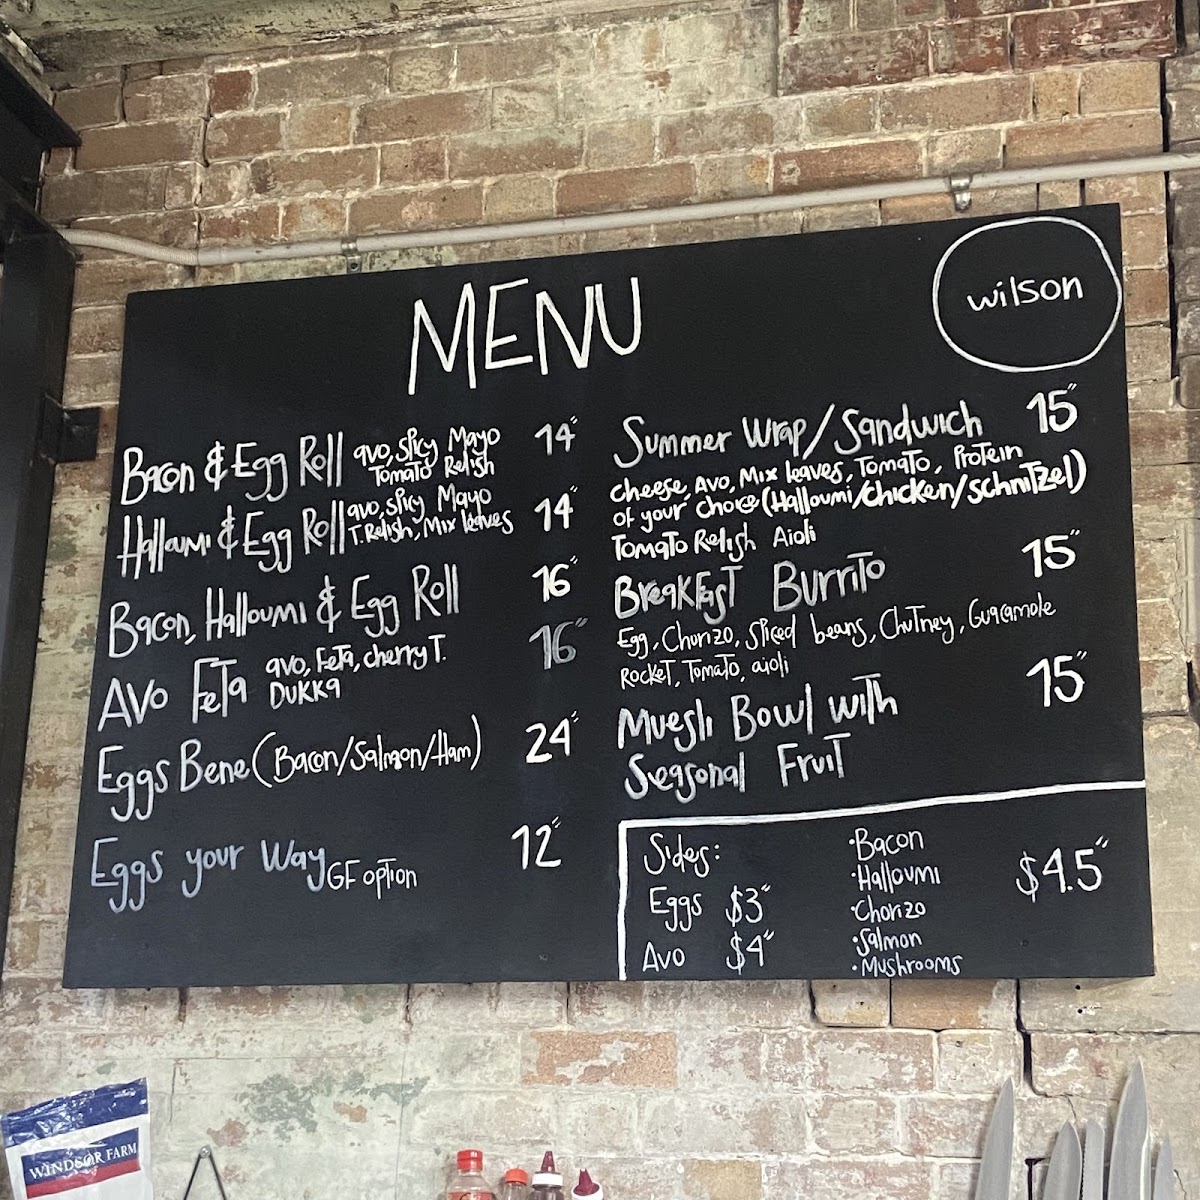 MENU
wilson
Bacon & Egg Roll avo, spicy Mayo 14"
Tomato Relish
Halloumi & Egg Roll avo, spicy Mayo 14"
T. Relish, Mix leaves
Bacon, Halloumi & Egg Roll 16"
Avo Feta avo, Feta, cherry T. 16"
Dukka
Eggs Bene (Bacon/Salmon/Ham) 24"
Eggs your Way GF option 12"
Summer Wrap/Sandwich 15"
cheese, Avo, Mix leaves, Tomato, Protein
of your choice (Halloumi/chicken/schnitzel)
Tomato Relish Aioli
Breakfast Burrito 15"
Egg, Chorizo, spiced beans, Chutney, Guacamole
Rocket, Tomato, aioli
Muesli Bowl with 15"
Seasonal Fruit
Sides:
Eggs $3"
Avo $4"
·Bacon
·Halloumi
·Chorizo
·Salmon
·Mushrooms
$4.5"
WINDSOR FARM